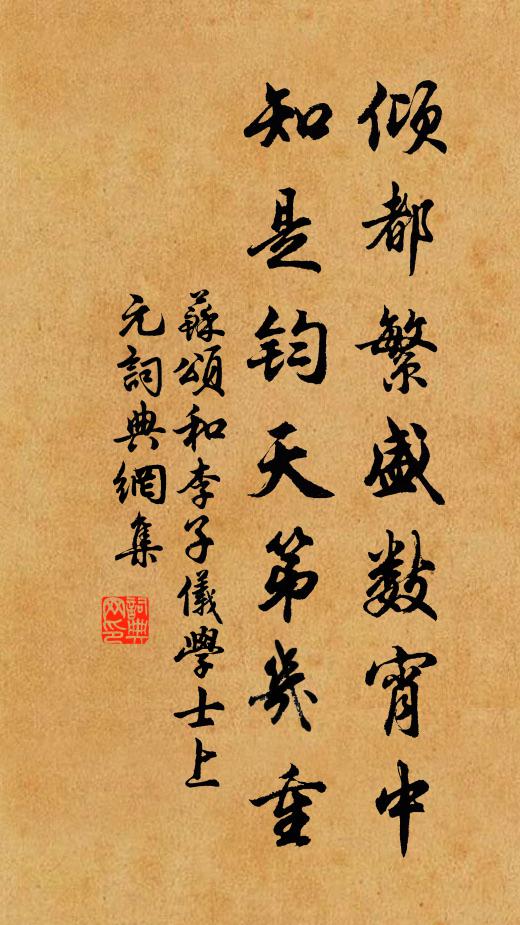 傾都繁盛數宵中
知是鈞天第幾重
蘇頌和李子儀學士上
元詞典網集
詞典
网印